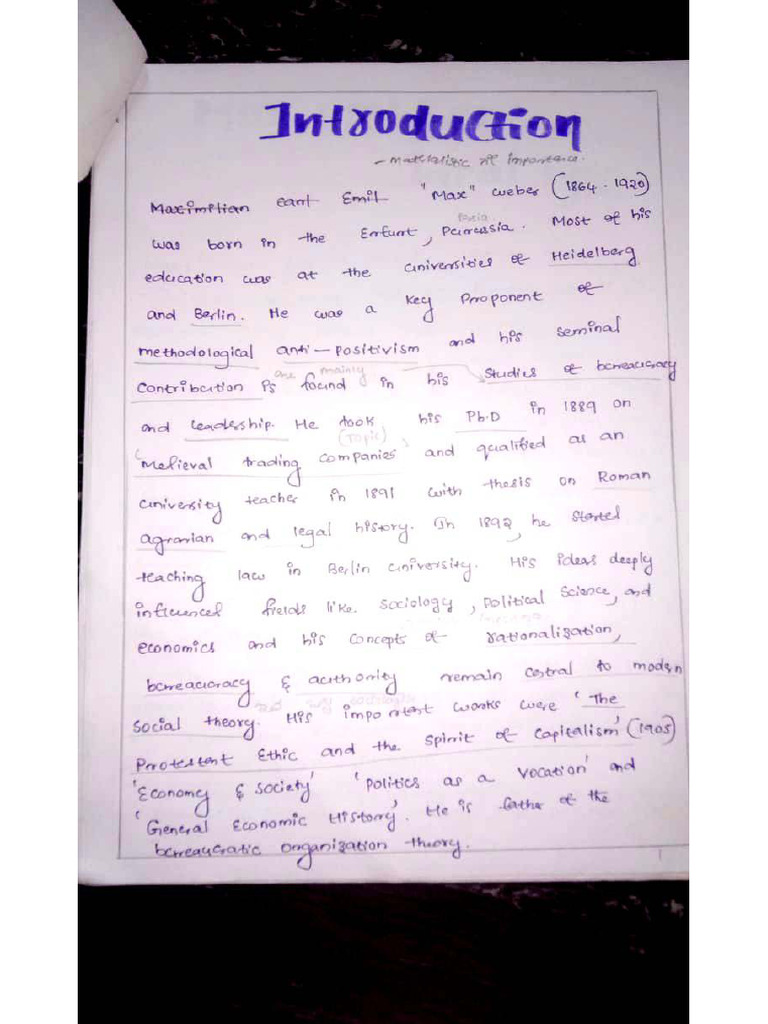 Introduction
- Materialistic ને importance.
Maximilian earl Emil "Max" weber (1864 - 1920)
was born in the Erfurt, Purrusia. Most of his
education was at the universities of Heidelberg
and Berlin. He was a key Proponent of
methodological anti-positivism and his seminal
are mainly
Contribution is found in his studies of bureaucracy
and leadership. He took his Ph.D in 1889 on
(Topic)
Medieval trading companies and qualified as an
university teacher in 1891 with thesis on Roman
agrarian and legal history. In 1892, he started
teaching law in Berlin university. His ideas deeply
influenced fields like sociology, political science, and
economics and his concepts of rationalization,
bureaucracy & authority remain central to modern
social theory. His important works were 'The
Protestent Ethic and the spirit of Capitalism' (1905)
'Economy & society' 'Politics as a vocation' and
'General Economic History'. He is father of the
bureaucratic organization theory.
1